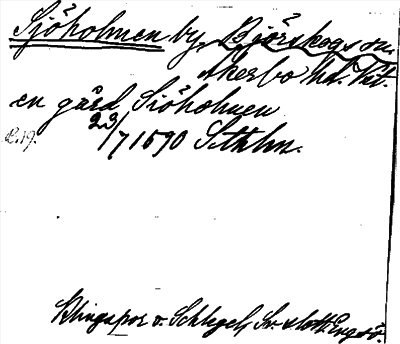 Sjöholmen by, Björskogs sn.
Åkerbo hd. Cit.
en gård Siöholmen
R. 19. 23/7 1590 Sthlm.
Klingspor o. Schlegel, Sv. slott. Engsö.